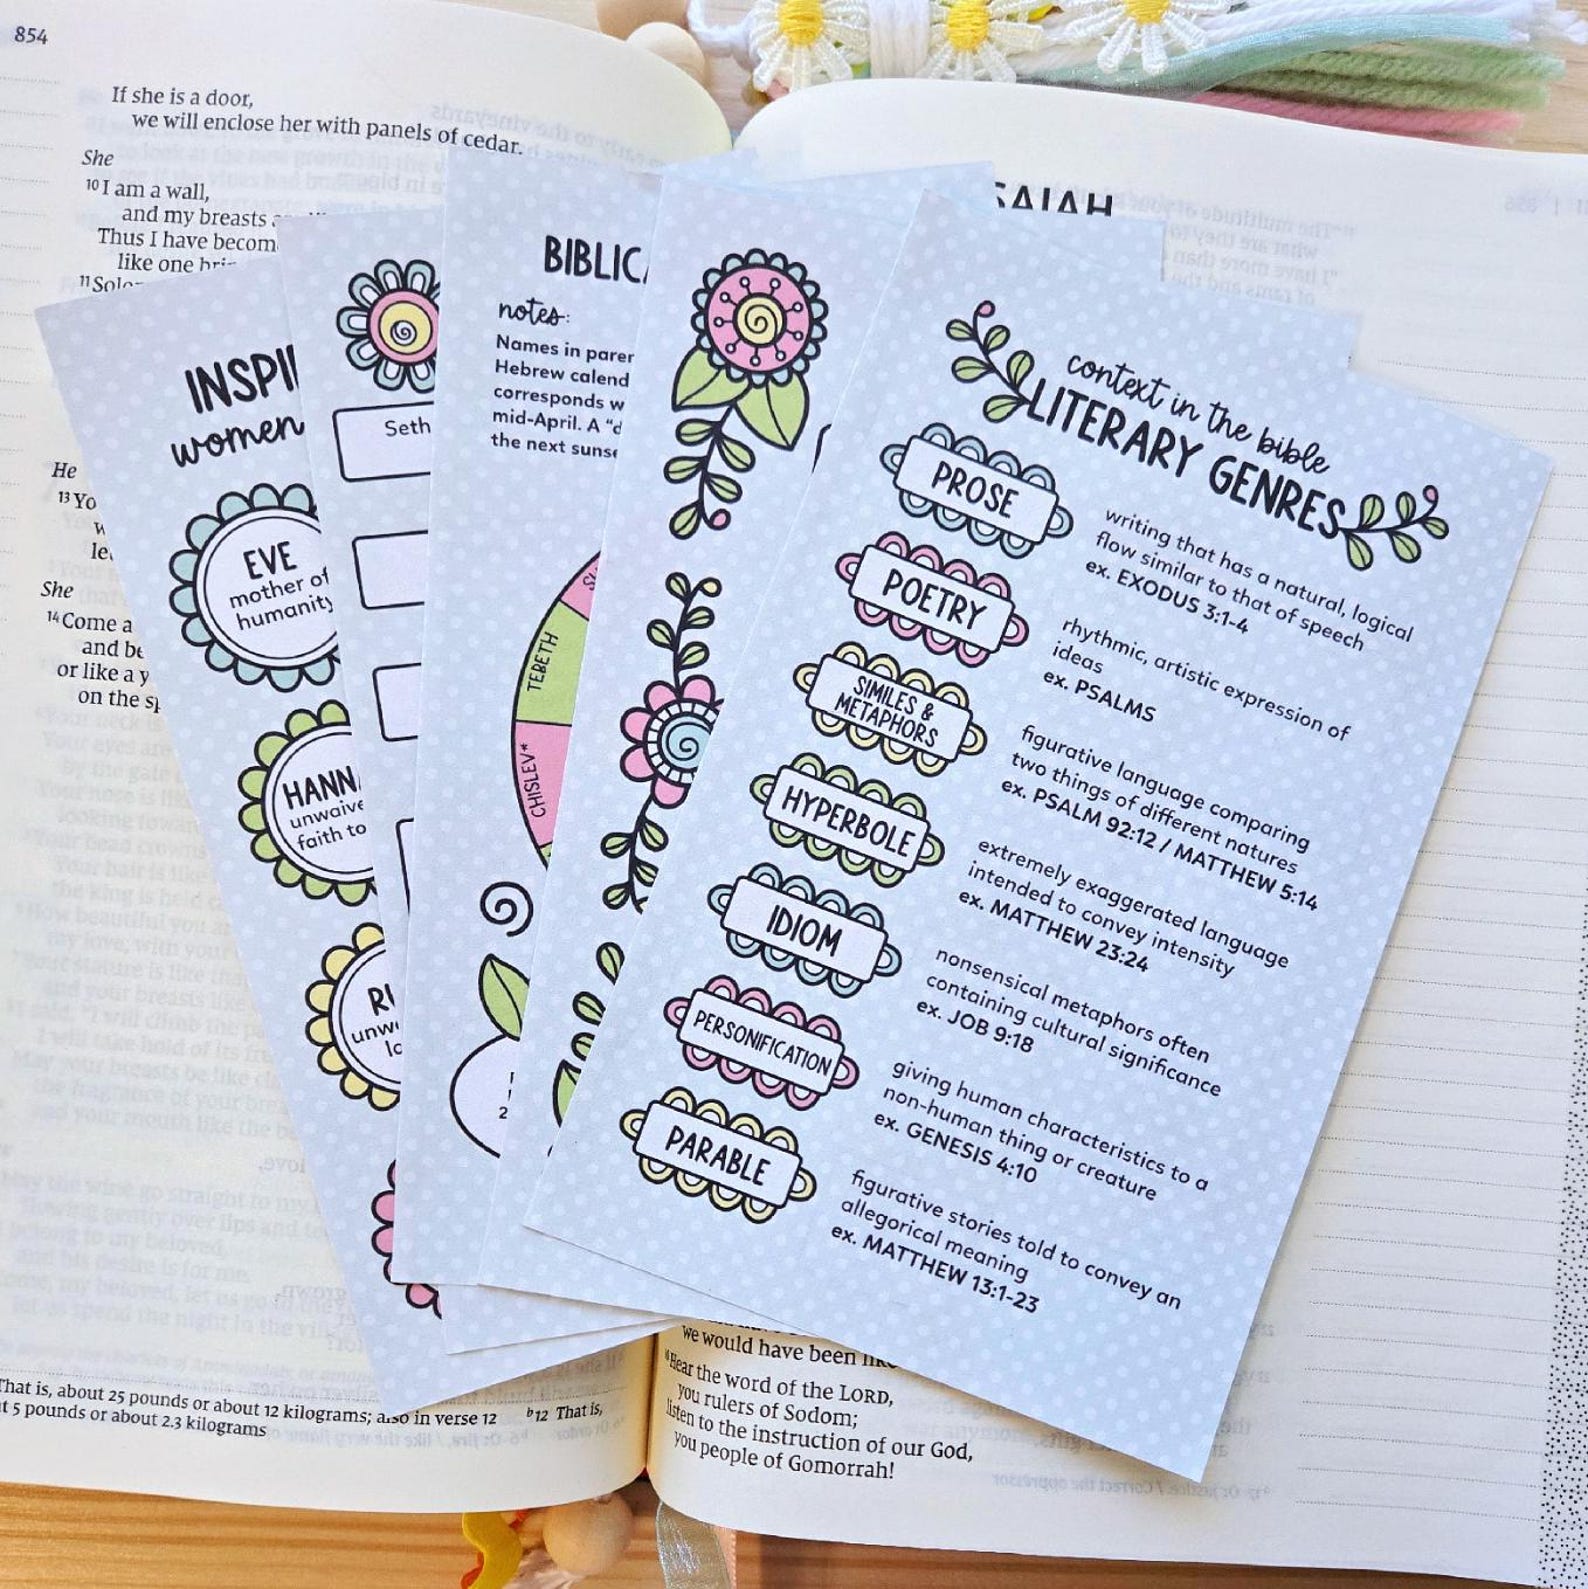 854
If she is a door,
we will enclose her with panels of cedar.
She
10 I am a wall,
and my breasts
Thus I have becom
like one
11
He
13 Yo
She
14 Come a
and be
or like a y
on the
That is, about 25 pounds or about 12 kilograms; also in verse 12 b12 That is,
5 pounds or about 2.3 kilograms
INSPI
women
EVE
mother of
humanity
HANN
unwave
faith to
RU
unw
lo
Seth
BIBLICA
notes:
Names in paren
Hebrew calend
corresponds w
mid-April. A "d
the next sunse
TEBETH
CHISLEV*
2
SAIAH
context in the bible
LITERARY GENRES
PROSE
writing that has a natural, logical
flow similar to that of speech
ex. EXODUS 3:1-4
POETRY
rhythmic, artistic expression of
ideas
ex. PSALMS
SIMILES &
METAPHORS
figurative language comparing
two things of different natures
ex. PSALM 92:12 / MATTHEW 5:14
HYPERBOLE
extremely exaggerated language
intended to convey intensity
ex. MATTHEW 23:24
IDIOM
nonsensical metaphors often
containing cultural significance
ex. JOB 9:18
PERSONIFICATION
giving human characteristics to a
non-human thing or creature
ex. GENESIS 4:10
PARABLE
figurative stories told to convey an
allegorical meaning
ex. MATTHEW 13:1-23
we would have been like
Hear the word of the LORD,
you rulers of Sodom;
listen to the instruction of our God,
you people of Gomorrah!